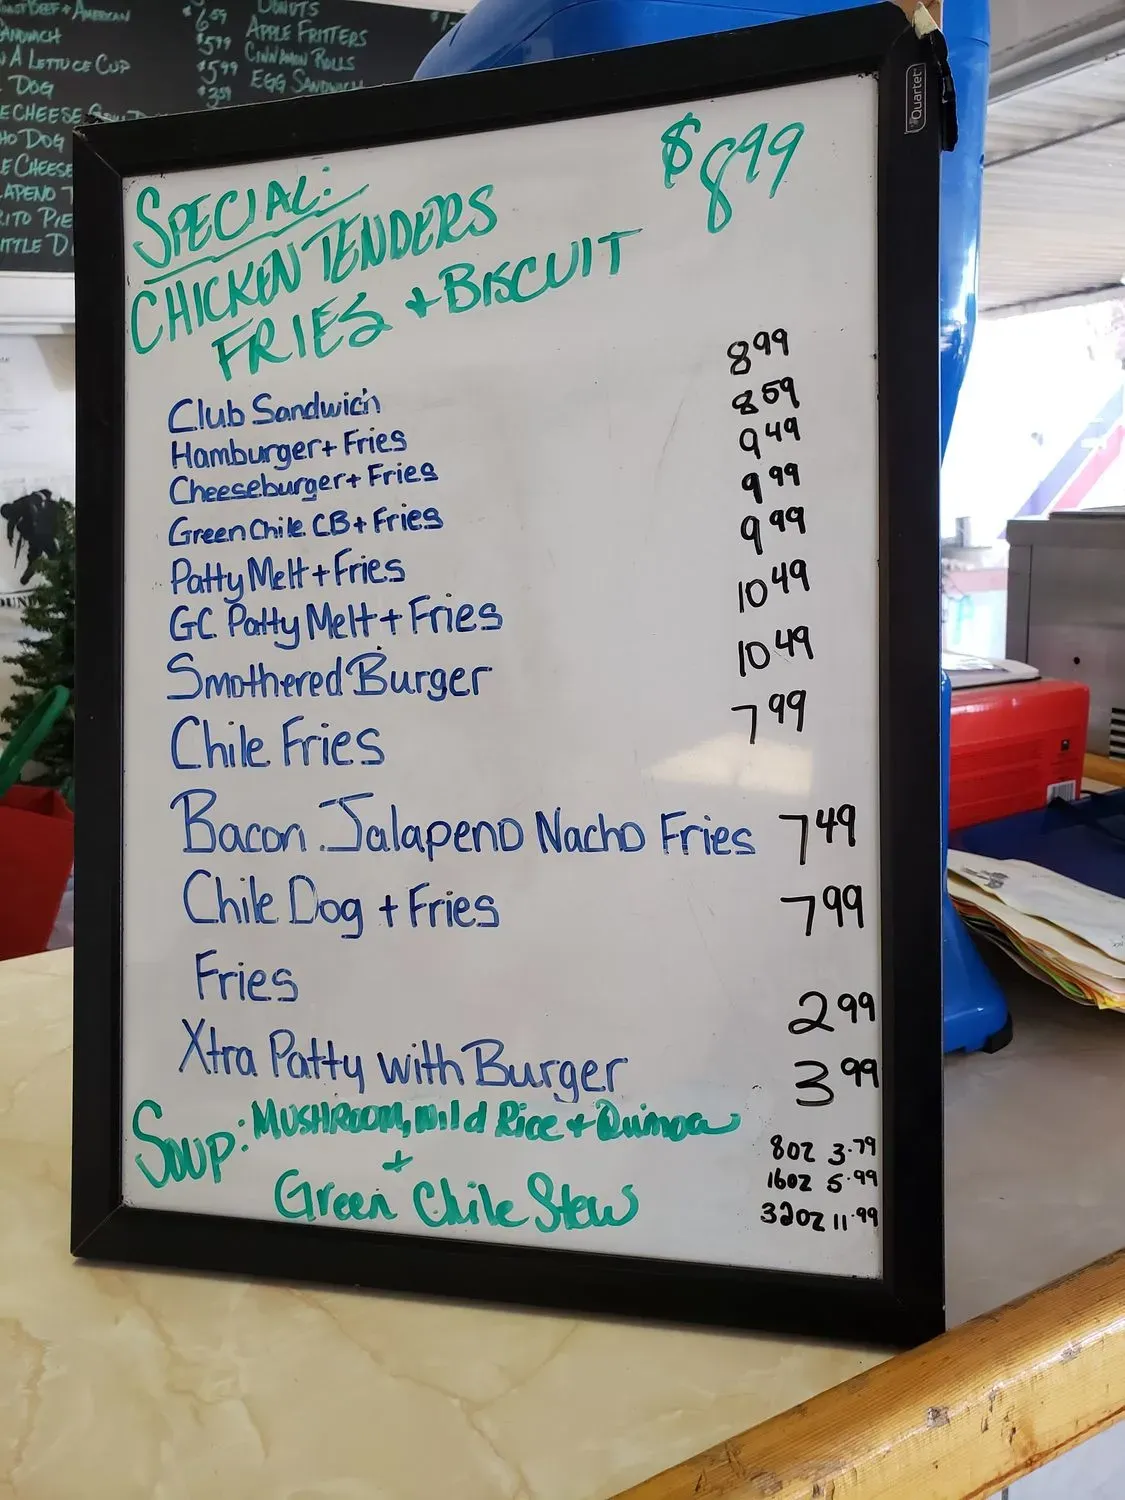 $6.59
SANDWICH
$5.99
A LETTUCE CUP
$5.99
DOG
$3.99
DONUTS
APPLE FRITTERS
CINNAMON ROLLS
EGG SANDWICH
Quartet
SPECIAL: $8.99
CHICKEN TENDERS
FRIES + BISCUIT
Club Sandwich 8.99
Hamburger + Fries 8.59
Cheeseburger + Fries 9.49
Green Chile CB + Fries 9.99
Patty Melt + Fries 9.99
GC Patty Melt + Fries 10.49
Smothered Burger 10.49
Chile Fries 7.99
Bacon Jalapeno Nacho Fries 7.49
Chile Dog + Fries 7.99
Fries 2.99
Xtra Patty with Burger 3.99
SOUP: MUSHROOM, Wild Rice + Quinoa
+
Green Chile Stew
8oz 3.79
16oz 5.99
32oz 11.99